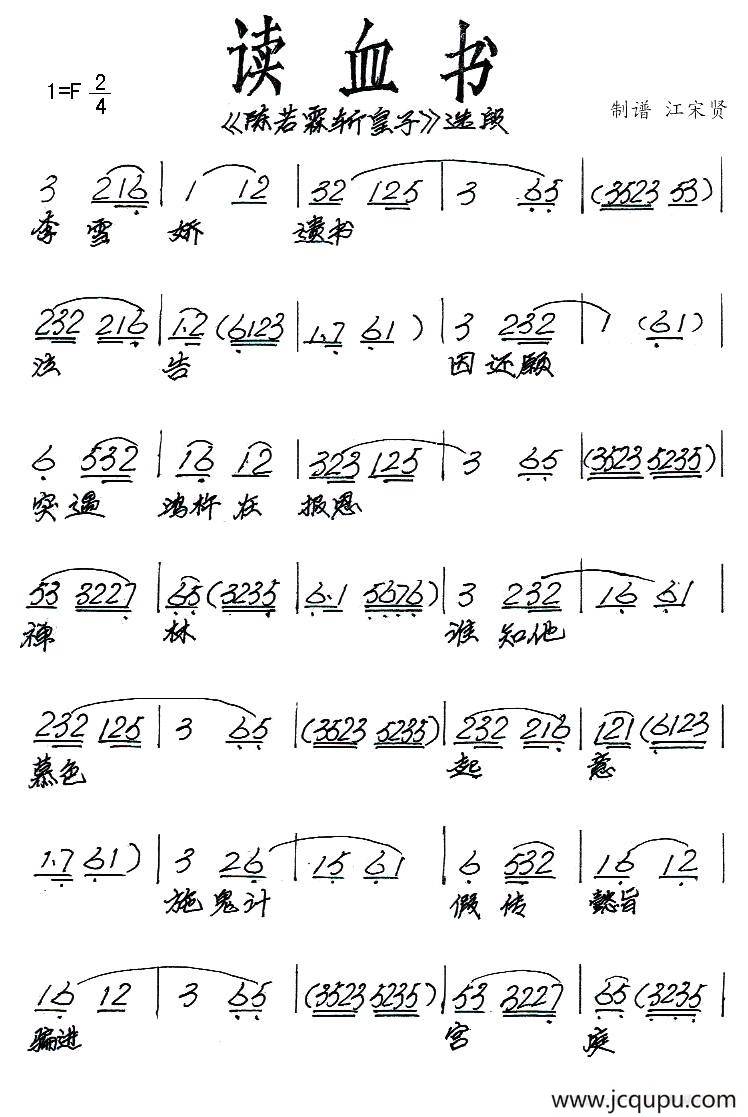 读血书
1=F 2/4
《陈若霖斩皇子》选段
制谱 江宋贤
3 216 | 1 12 | 32 125 | 3 65 | (3523 53) |
李雪 娇 遗书
232 216 | 1.2 (6123 | 1.7 61) | 3 232 | 1 (61) |
泣 告 因还愿
6 532 | 16 12 | 323 125 | 3 65 | (3523 5235) |
突遇 鸿杵在 报恩
53 3227 | 65 (3235 | 6.1 5676) | 3 232 | 16 61 |
禅 林 谁知他
232 125 | 3 65 | (3523 5235) | 232 216 | 121 (6123 |
慕色 起 意
1.7 61) | 3 26 | 15 61 | 6 532 | 16 12 |
施鬼计 假传 懿旨
16 12 | 3 65 | (3523 5235) | 53 3227 | 65 (3235 |
骗进 宫 庭
www.jcqupu.com